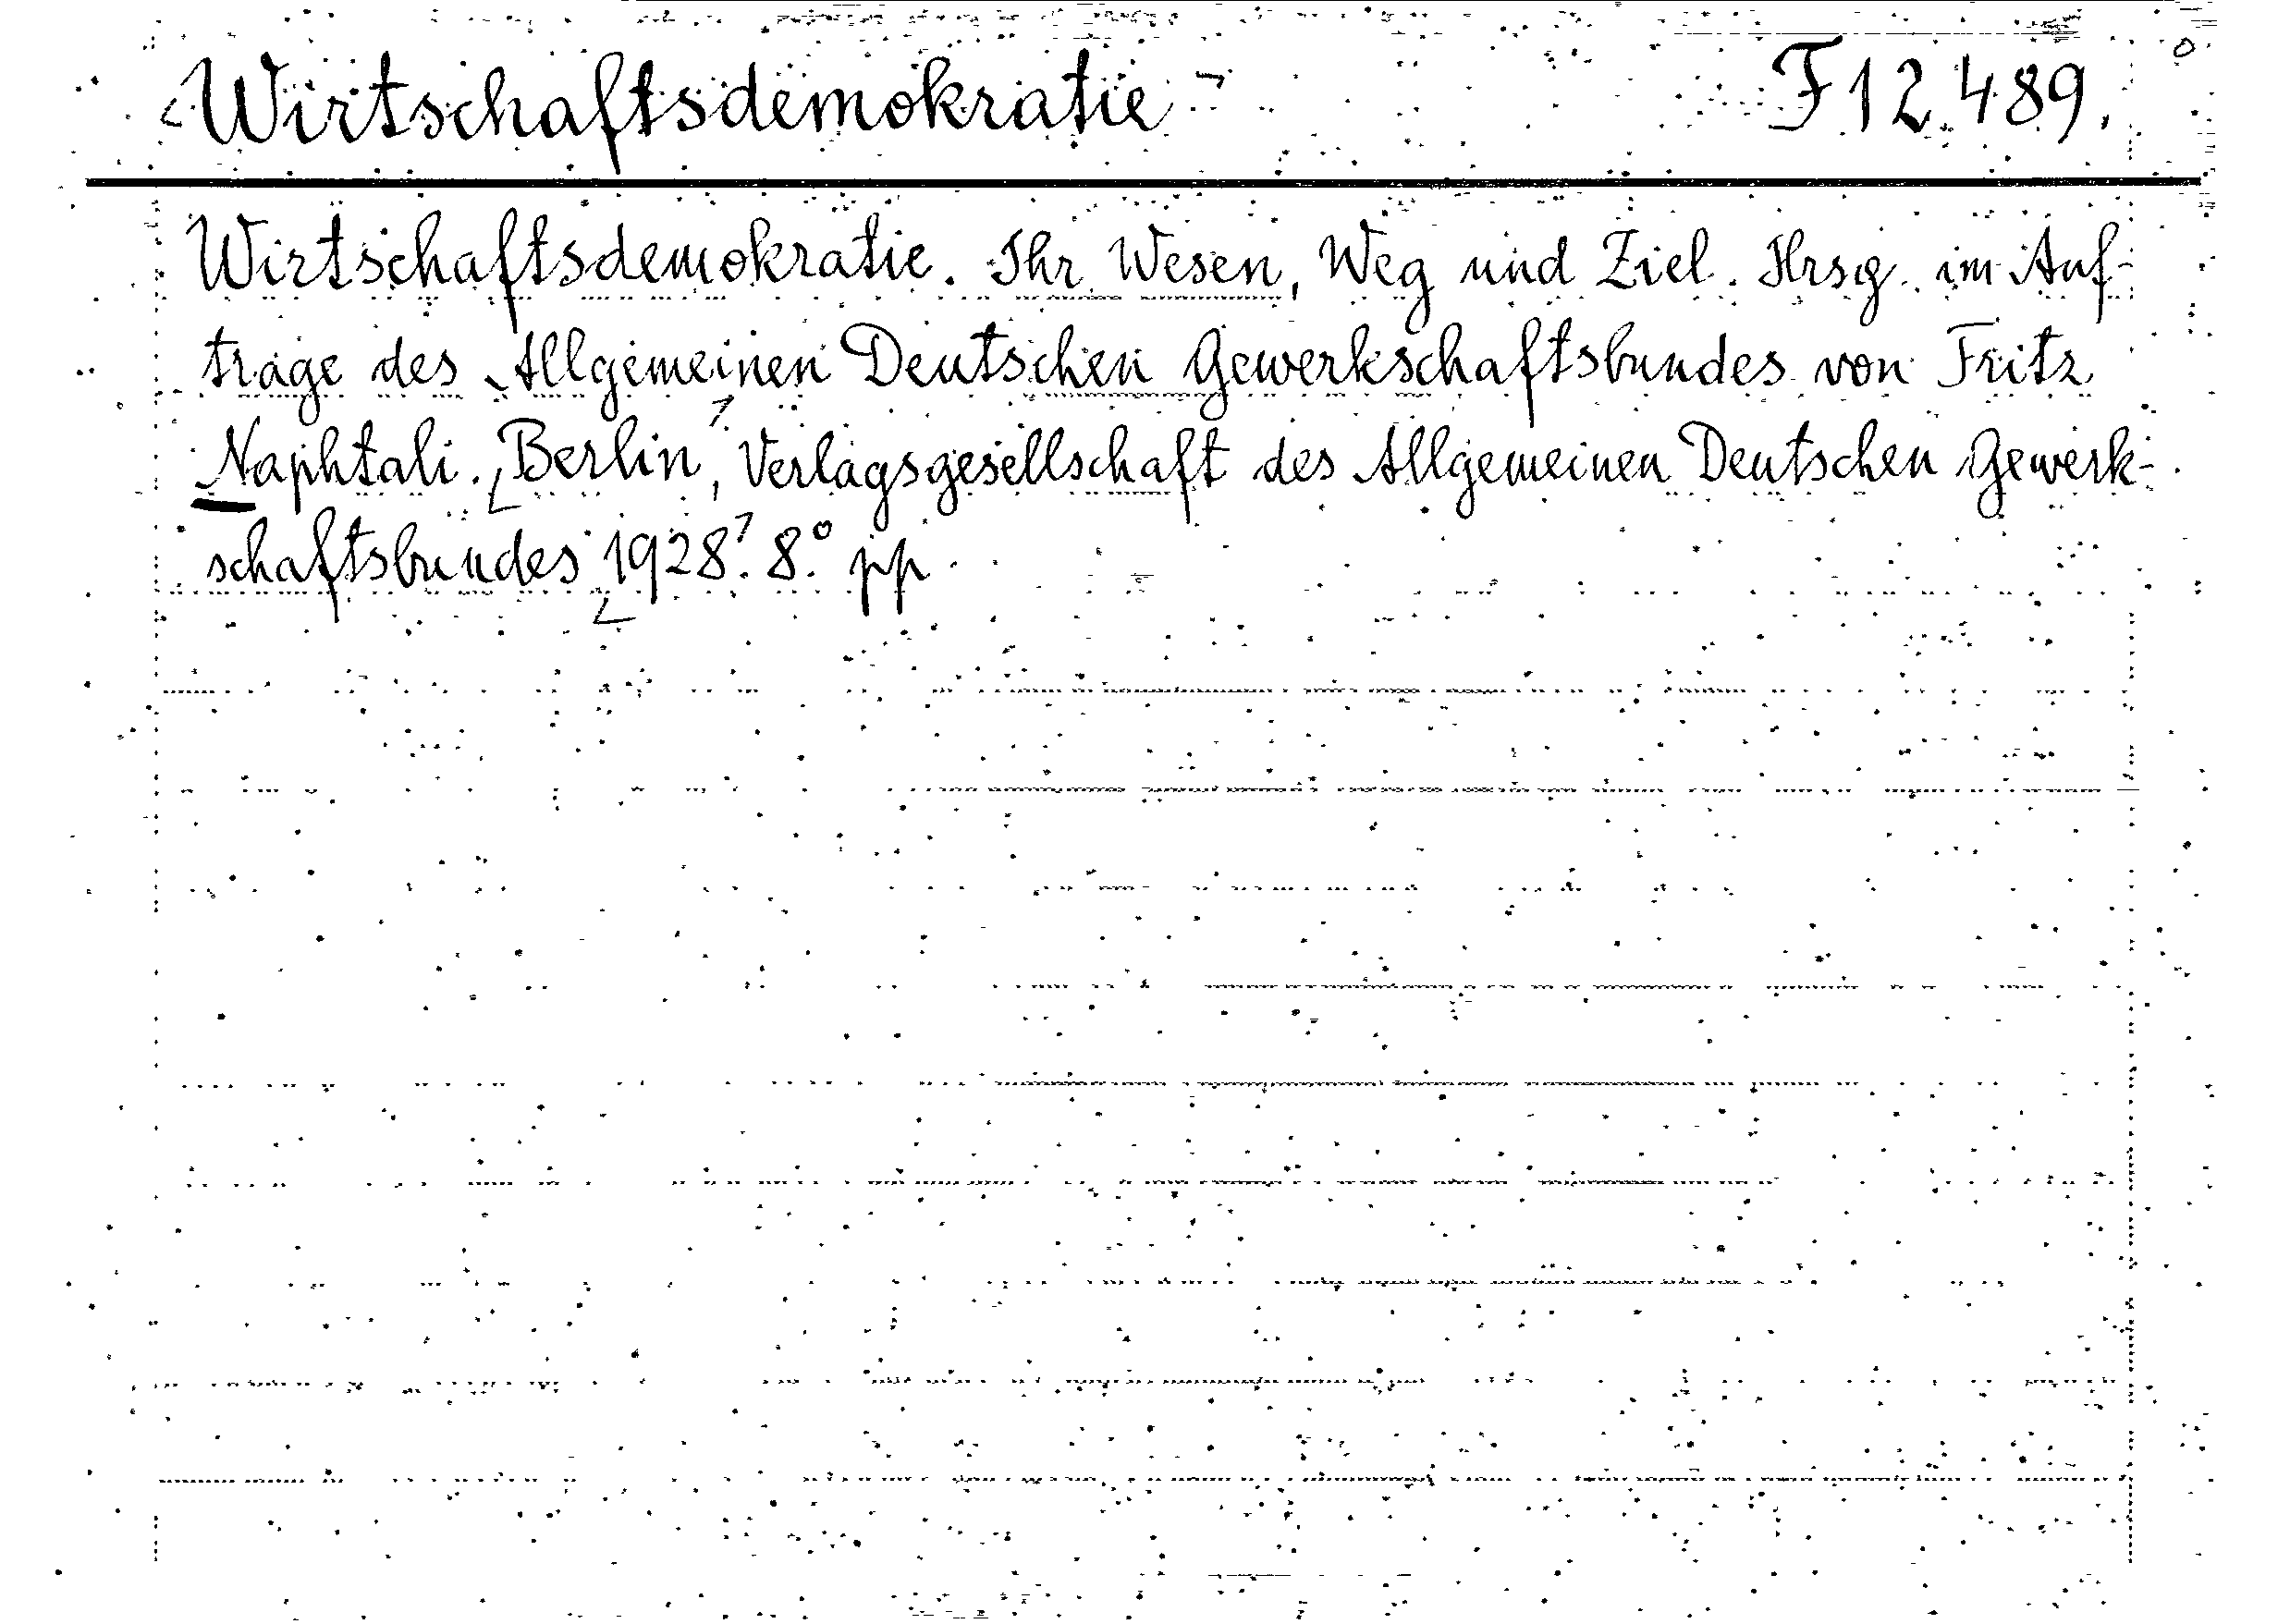 Wirtschaftsdemokratie F 12.489.
Wirtschaftsdemokratie. Ihr Wesen, Weg und Ziel. Hrsg. im Auf-
trage des Allgemeinen Deutschen Gewerkschaftsbundes von Fritz
Naphtali. Berlin, Verlagsgesellschaft des Allgemeinen Deutschen Gewerk-
schaftsbundes 1928. 8.° pp